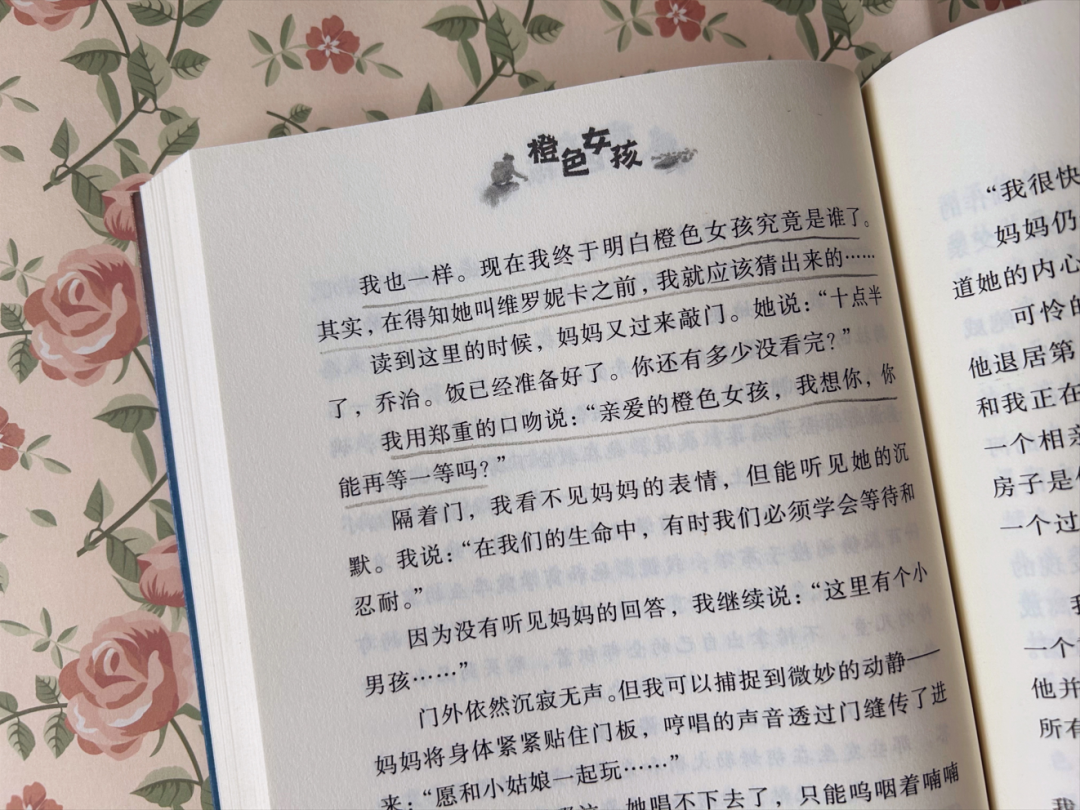 橙色女孩
我也一样。现在我终于明白橙色女孩究竟是谁了。
其实，在得知她叫维罗妮卡之前，我就应该猜出来的……
读到这里的时候，妈妈又过来敲门。她说：“十点半
了，乔治。饭已经准备好了。你还有多少没看完？”
我用郑重的口吻说：“亲爱的橙色女孩，我想你，你
能再等一等吗？”
隔着门，我看不见妈妈的表情，但能听见她的沉
默。我说：“在我们的生命中，有时我们必须学会等待和
忍耐。”
因为没有听见妈妈的回答，我继续说：“这里有个小
男孩……”
门外依然沉寂无声。但我可以捕捉到微妙的动静——
妈妈将身体紧紧贴住门板，哼唱的声音透过门缝传了进
来：“愿和小姑娘一起玩……”
她唱不下去了，只能呜咽着喃喃
“我很快
妈妈仍
道她的内心
可怜的
他退居第
和我正在
一个相亲
房子是
一个过
一个
他并
所有
我